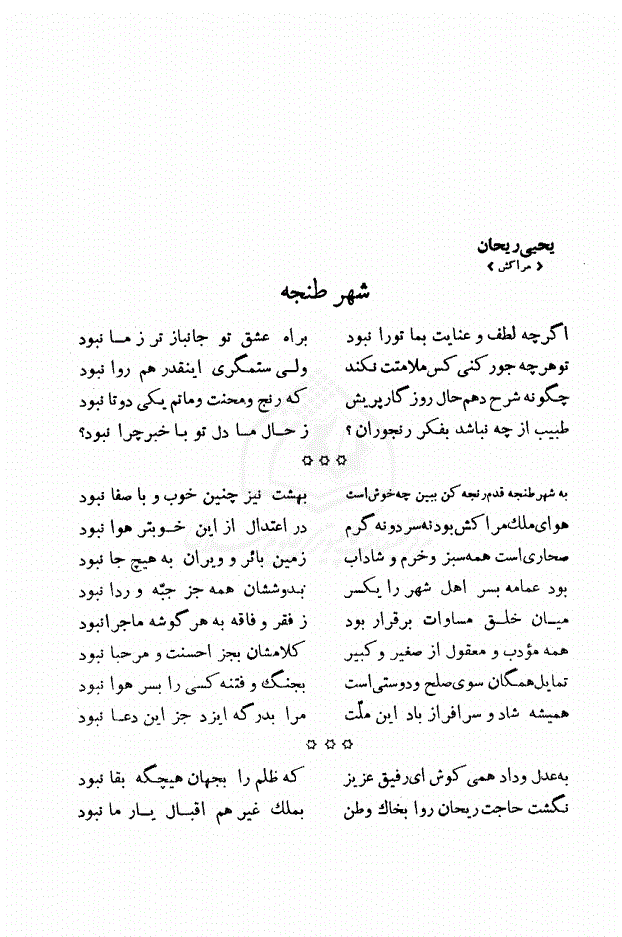 یحیی ریحان
« مراکش »
شهر طنجه
اگرچه لطف و عنایت بما تورا نبود براه عشق تو جانباز تر ز ما نبود
تو هرچه جور کنی کس ملامتت نکند ولی ستمگری اینقدر هم روا نبود
چگونه شرح دهم حال روزگار پریش که رنج ومحنت وماتم یکی دوتا نبود
طبیب از چه نباشد بفکر رنجوران ؟ ز حال ما دل تو با خبر چرا نبود؟
✡ ✡ ✡
به شهر طنجه قدم رنجه کن ببین چه خوش است بهشت نیز چنین خوب و با صفا نبود
هوای ملک مراکش بود نه سرد و نه گرم در اعتدال از این خوبتر هوا نبود
صحاری است همه سبز وخرم و شاداب زمین بائر و ویران به هیچ جا نبود
بود عمامه بسر اهل شهر را یکسر بدوششان همه جز جبّه و ردا نبود
میان خلق مساوات برقرار بود ز فقر و فاقه به هر گوشه ماجرا نبود
همه مؤدب و معقول از صغیر و کبیر کلامشان بجز احسنت و مرحبا نبود
تمایل همگان سوی صلح و دوستی است بجنگ و فتنه کسی را بسر هوا نبود
همیشه شاد و سرافراز باد این ملّت مرا بدرگه ایزد جز این دعا نبود
✡ ✡ ✡
به عدل وداد همی کوش ای رفیق عزیز که ظلم را بجهان هیچگه بقا نبود
نگشت حاجت ریحان روا بخاک وطن بملک غیر هم اقبال یار ما نبود